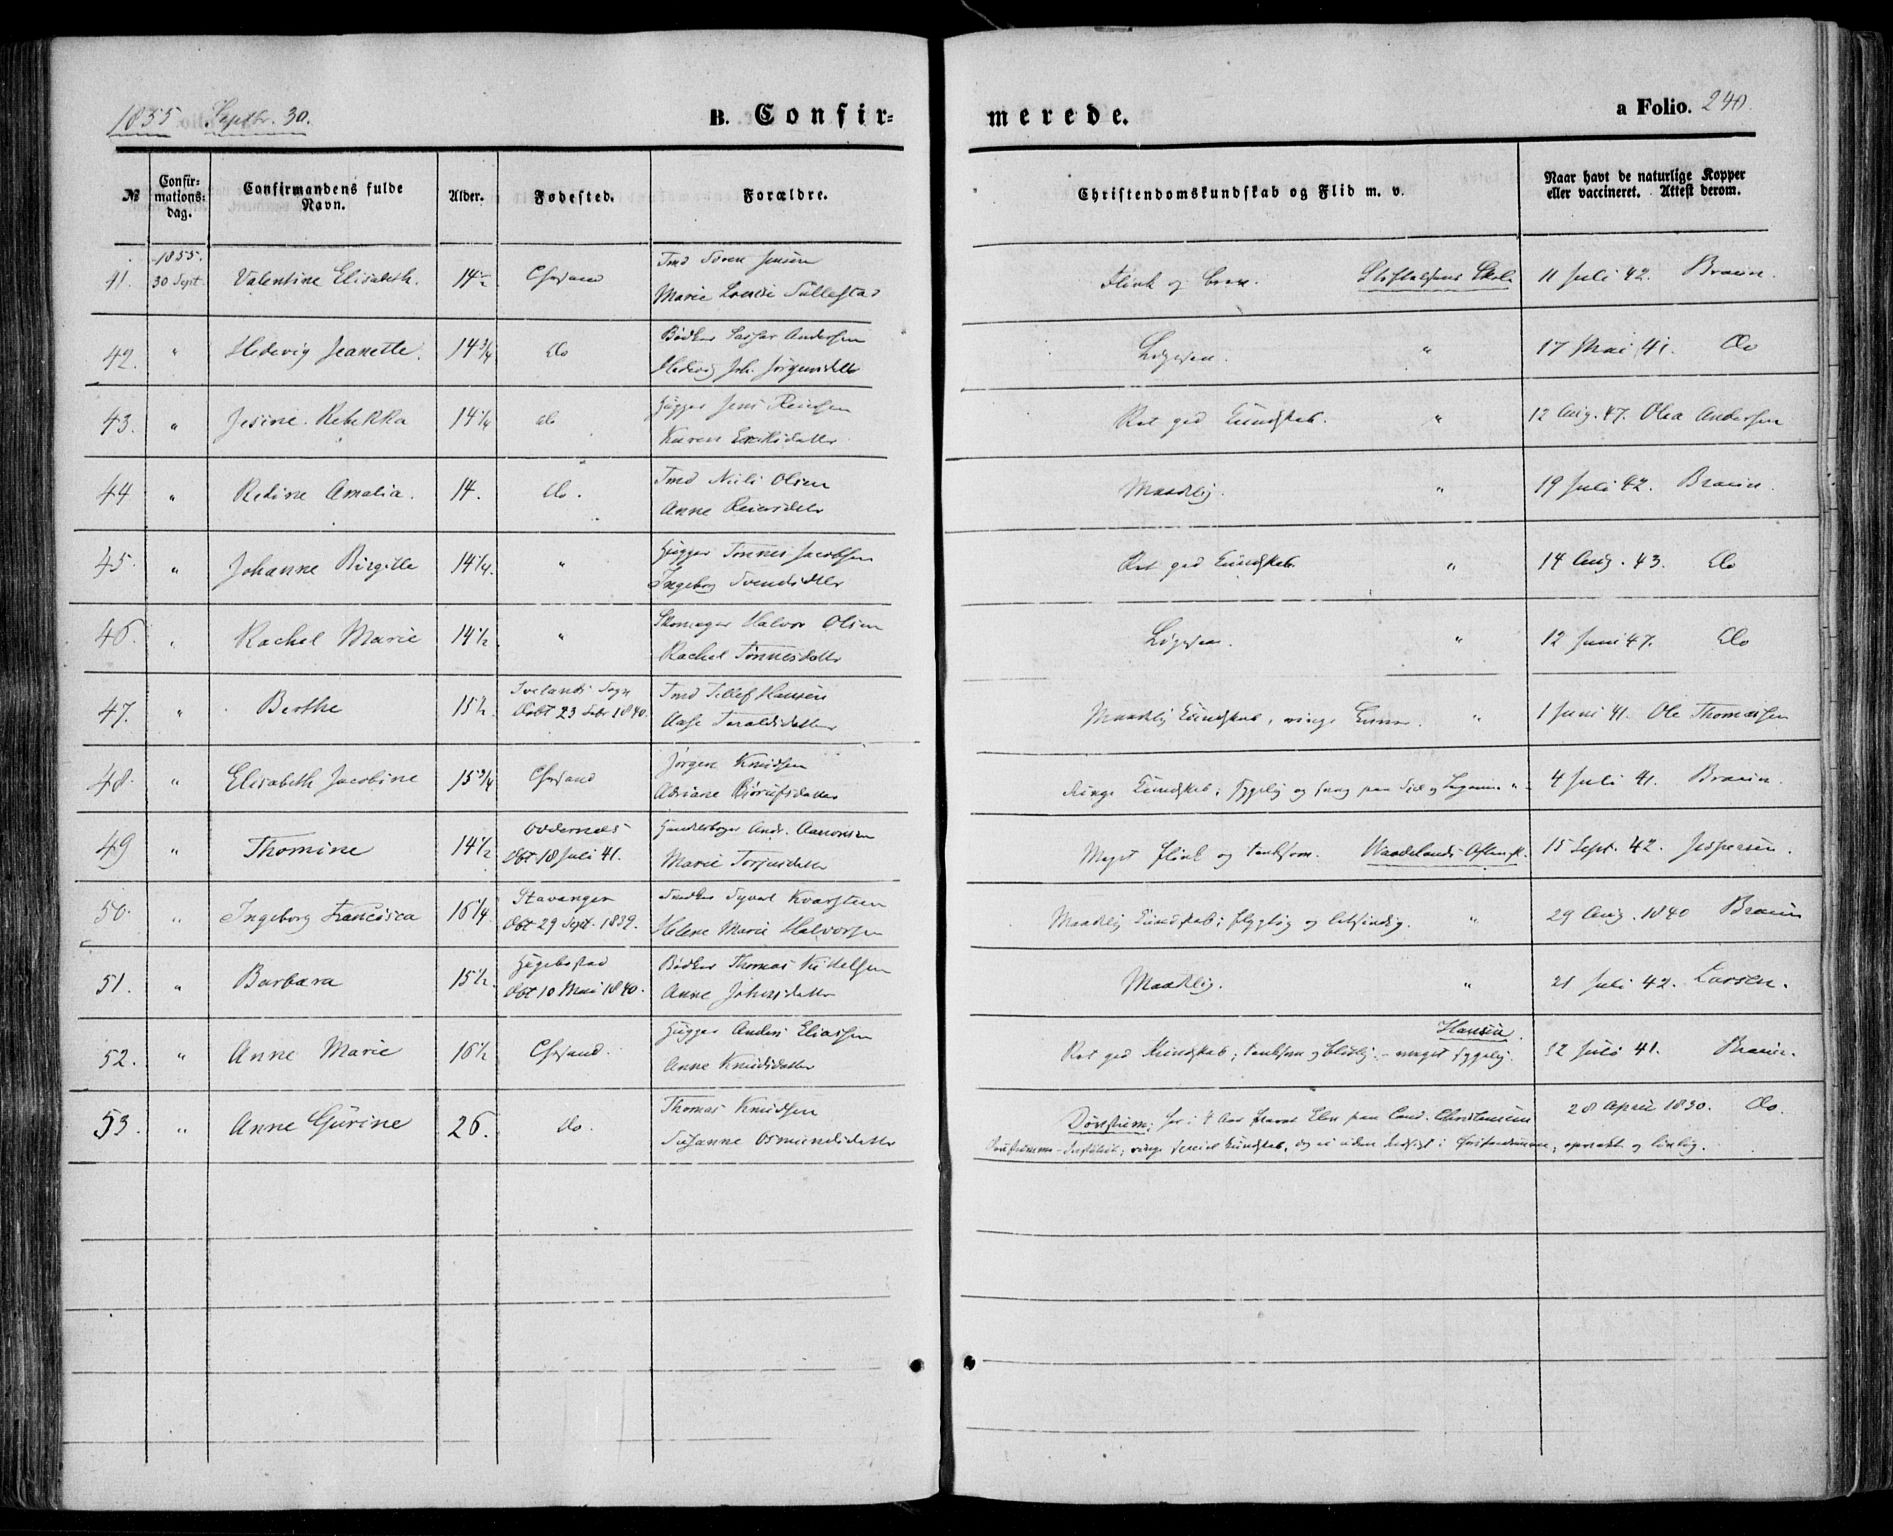 1855 Septbr. 30.
B. Confir-
merede.
a Folio. 240.
№
Confir-
mations-
dag.
Confirmandens fulde
Navn.
Alder.
Fødested.
Forældre.
Christendomskundskab og Flid m. v.
Naar havt de naturlige Kopper
eller vaccineret. Attest derom.
1855.
41. 30 Sept. Valentine Elisabeth. 14½ Chrsand
Marie Lovise Tullestad
Flink og
Skole 11 Juli 42. Braun.
42. " Hedevig Jeanette. 14¾ do
Bødker Andersen
Hedevig Joh. Jørgensdtr
Ligesaa. " 17 Mai 41. Do
43. " Jesine Rebekka 14¼ do
Hugger Jens
Karen
Ret god Kundskab. " 12 Aug. 47. Olea Andersen
44 " Amalia. 14. do.
Tmd Niels Olsen
Anne Reiersdtr
Maadelig. " 19 Juli 42. Braun.
45. " Johanne Birgitte 14¼. "
Hugger Tønnes Jacobsen
Ingeborg Svendsdtr
Ret god Kundskab " 14 Aug. 43. Do
46. " Rachel Marie 14½. "
Skomager Halvor Olsen
Rachel Tønnesdatter
Ligesaa. " 12 Juni 47. Do
47. " Berthe 15½.
Ivelands Sogn
Døbt 23 Febr 1840.
Tmd Tellef Hansen
Aase Taraldsdatter
Maadelig Kundskab, ringe " 1 Juni 41. Ole Thomassen
48. " Elisabeth Jacobine 15¾ Chrsand
Jørgen Knudsen
Adriane
Ringe Kundskab; sygelig og svag paa Sjel og Legeme " 4 Juli 41. Braun.
49 " Thomine 14½
Oddernes
Døbt 18 Juli 41.
Andr. Aanonsen
Marie Torjusdatter
Meget flink og tænksom. 15 Sept. 42. Jespersen.
50. " Ingeborg Francisca 16¼.
Stavanger
Døbt 29 Sept. 1839.
Snedker Syvert Kvarstein
Helene Marie Halvorsen
Maadelig Kundskab; flygtig og letsindig. " 29 Aug. 1840 Braun
51. " Barbara 15½.
Hægebostad
Døbt 10 Mai 1840.
Bødker Thomas Kittelsen
Anne Johnsdatter
Maadelig. " 21 Juli 42. Larsen.
52. " Anne Marie 16½ Chrsand.
Hugger Anders Eliassen
Anne Knudsdatter
Hansen.
Ret god Kundskab; tænksom og meget sygelig. 12 Juli 41. Braun.
53. " Anne Gurine 26. do.
Thomas Knudsen
Susanne Osmundsdatter
Døvstum; har i 4 Aar været Elev paa Cand. Christensens 28 April 1830. Do.
Døvstumme-Institut; ringe Kundskab, og ei uden Indsigt i Christendommen; opvakt og livlig.